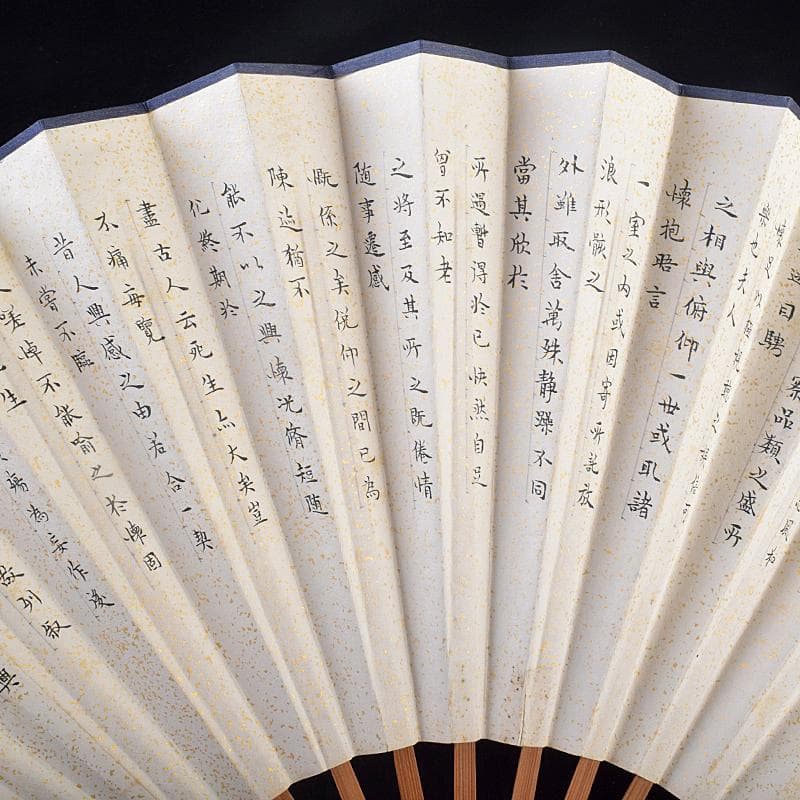 察品類之盛所
遊目騁
懷足以極視聽之娱信可
樂也夫人
之相與俯仰一世或取諸
懷抱晤言
一室之内或因寄所託放
浪形骸之
外雖取舍萬殊静躁不同
當其欣於
所遇暫得於己快然自足
曾不知老
之將至及其所之既倦情
随事遷感
慨係之矣俛仰之間已為
陳迹猶不
能不以之興懷况脩短随
化終期於
盡古人云死生亦大矣豈
不痛每覽
昔人興感之由若合一契
未嘗不臨
嗟悼不能喻之於懷固
生
殤為妄作後
列叙
興